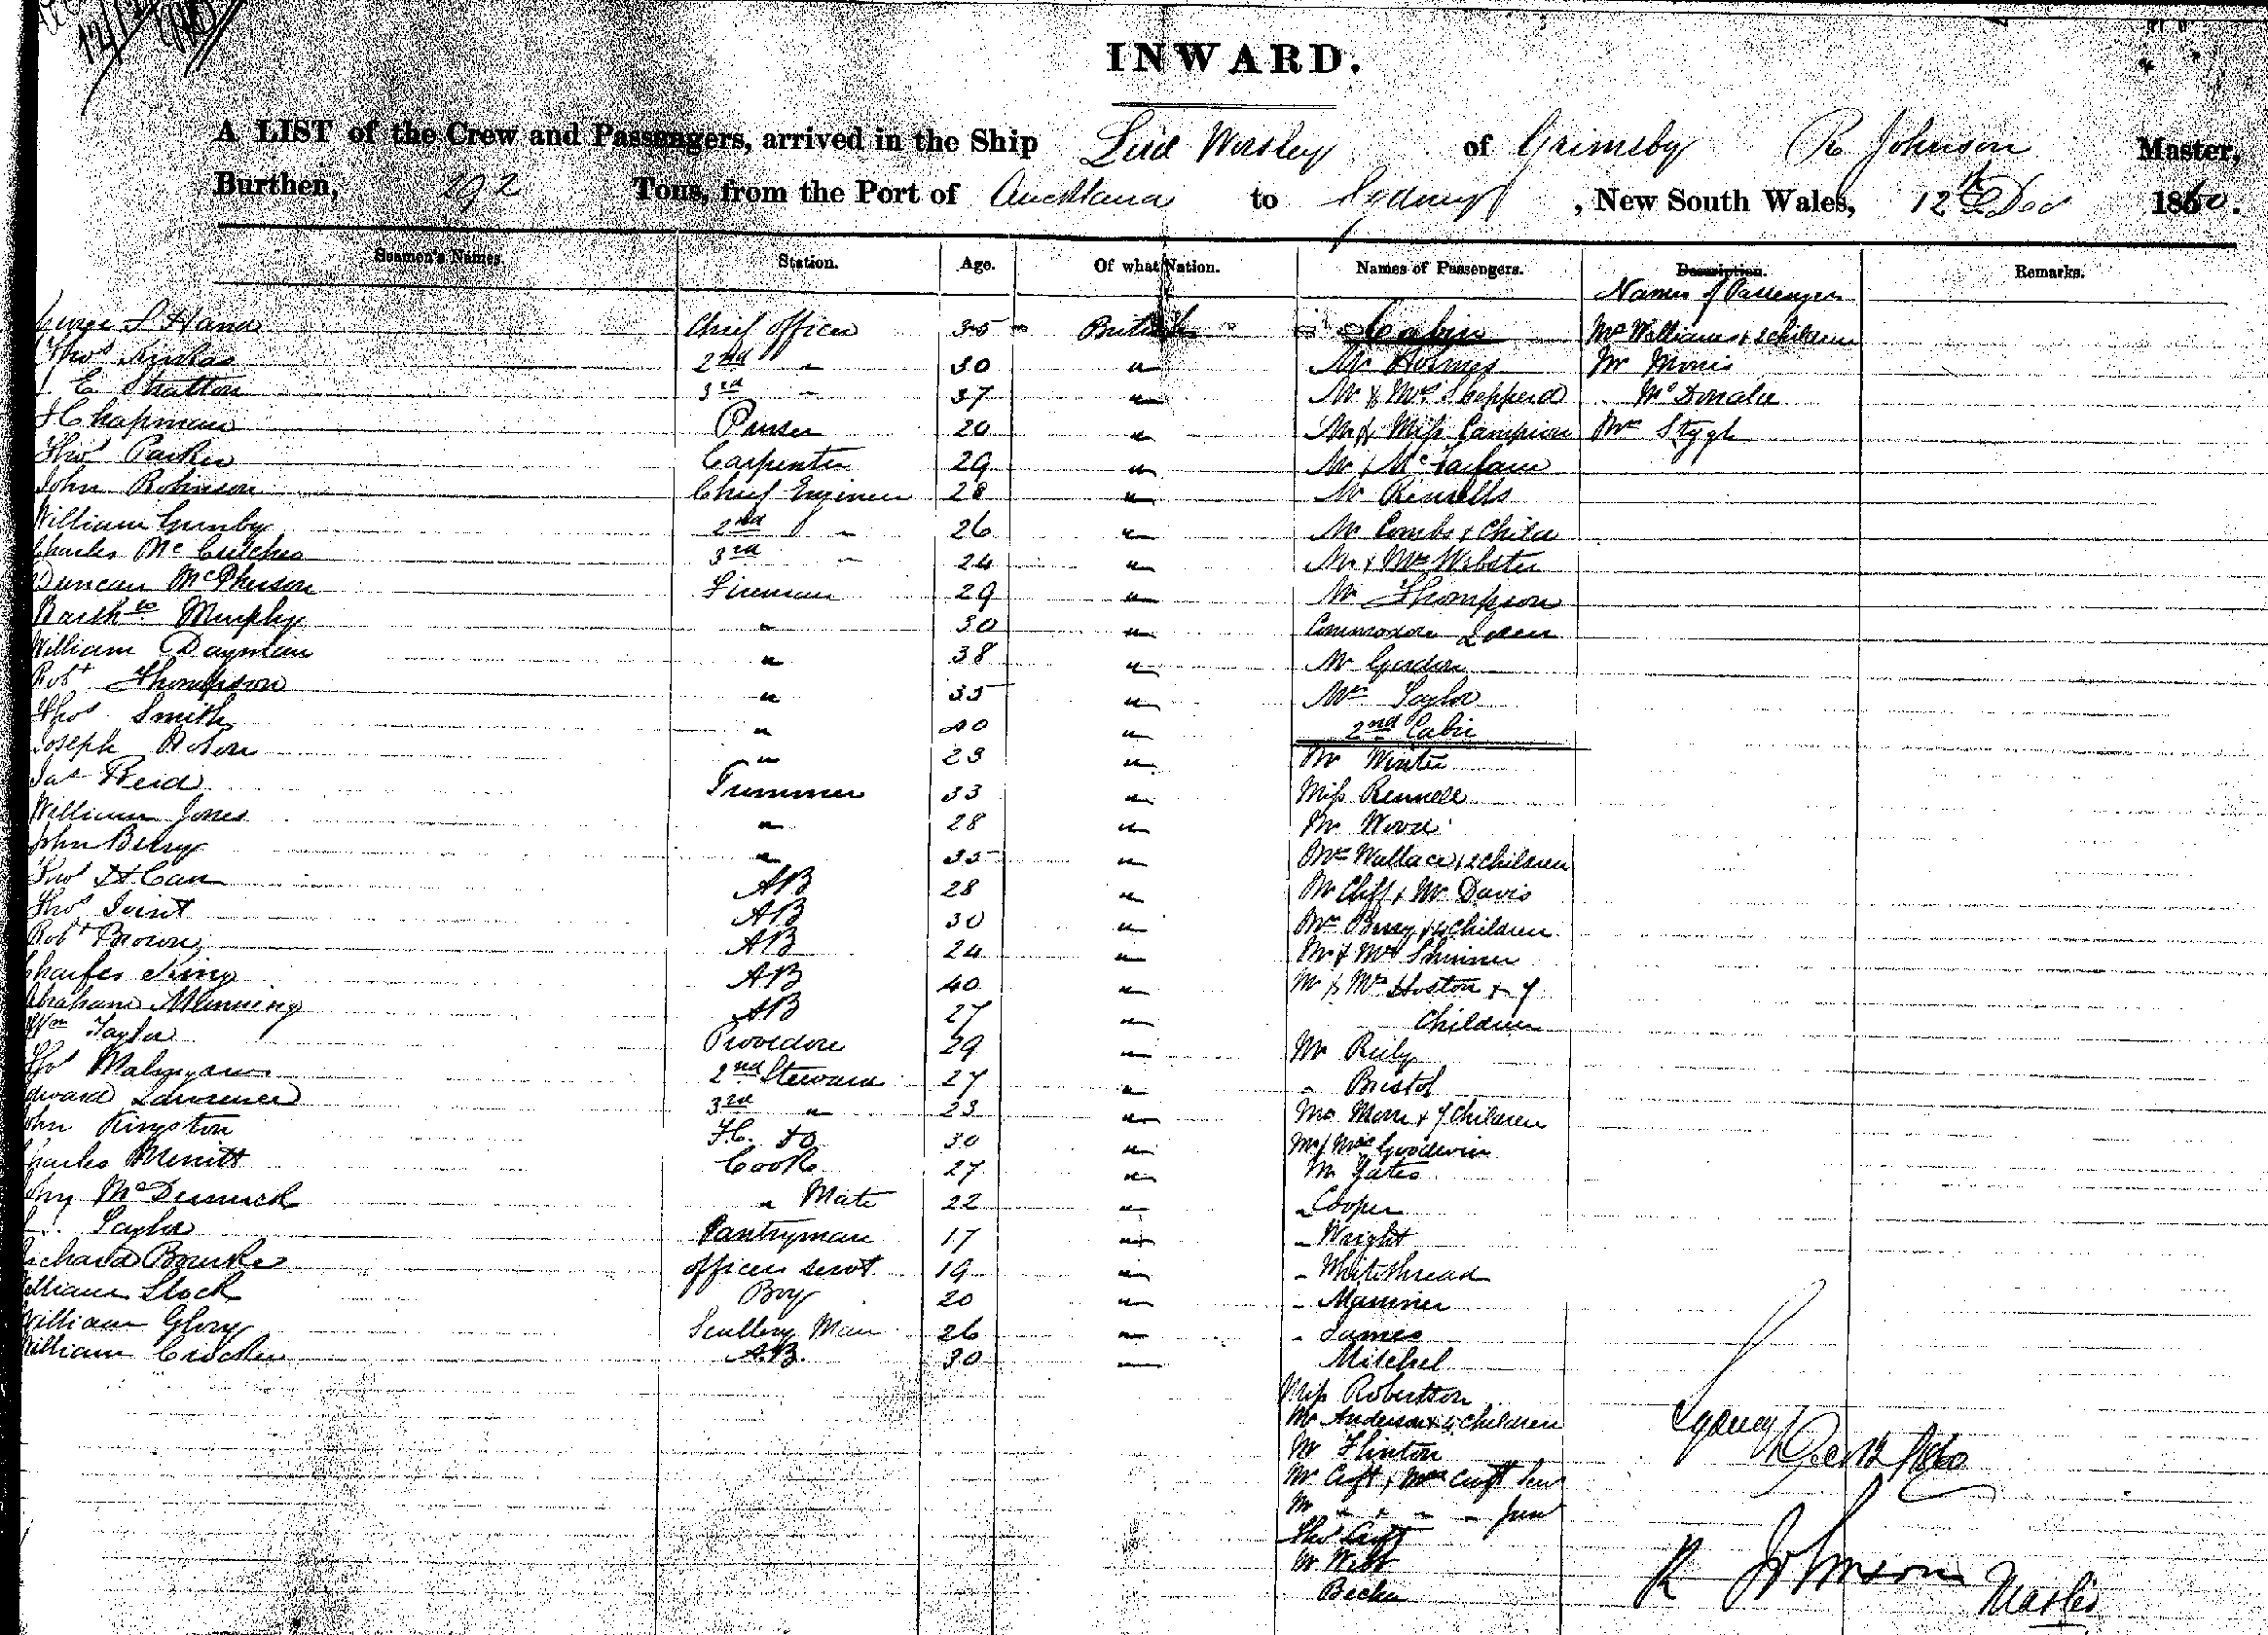 INWARD.
A LIST of the Crew and Passengers, arrived in the Ship Lord Worsley of Grimsby R Johnson Master,
Burthen, 292 Tons, from the Port of Auckland to Sydney, New South Wales, 12th Dec 1860.
Seamen's Names. Station. Age. Of what Nation. Names of Passengers. Description. Remarks.
Names of Passengers
George S Hand Chief Officer 35 British Cabin Mrs Williams & 2 children
Thos 2nd " 30 " Mr Holmes Mr Morris
E Stratton 3rd " 37 " Mr & Mrs Shepperd McDonald
Chapman Purser 20 " Mr & Miss Campion Mrs
Thos Parker Carpenter 29 " Mr &
John Robinson Chief Engineer 28 " Mr
William Gunby 2nd " 26 " Mr Combs & Child
Charles McCutcheo 3rd " 24 " Mr & Mrs Webster
Duncan McPherson Fireman 29 " Mr Thompson
Murphy " 30 " Commodore
William Dayman " 38 " Mr Gordon
Robt Thompson " 35 " Mrs Taylor
Thos Smith " 40 " 2nd Cabin
Joseph " 23 " Mr Winter
Jas Reid Trimmer 33 " Miss Rennell
William Jones " 28 " Mr Wood
John Berry " 35 " Mrs Wallace & 2 children
Thos H Carr AB 28 " Mr Cliff & Mr Davis
Thos Joint AB 30 " Mrs Berry & 4 Children
Robt Brown AB 24 " Mr & Mrs Skinner
Charles King AB 40 " Mr & Mrs Hoston & 7
Abraham Manning AB 27 " Children
Wm Taylor Provedore 29 " Mr Reily
Thos 2nd Steward 27 " " Bristol
Edward Lawrence 3rd " 23 " Mrs & 7 Children
John Kingston F.C. do 30 " Mr & Mrs Goodwin
Charles Merritt Cook 27 " Mr Yates
McDermick " Mate 22 " " Cooper
Taylor Pantryman 17 " " Wright
Richard Bourke Officers servt 19 " " Whitethread
William Slack Boy 20 " " Marriner
William Glory Scullery Man 26 " " James
William Crocker A.B. 30 " Mitchel
Miss Robertson
Mr Anderson & 4 Children
Mr Flinton
Mr Cuft & Mrs Cuft Senr
Mr " " " " Junr
Thos Cuft
Mr Webb
Becker
Sydney
Dec 12 /1860
R Johnson
Master